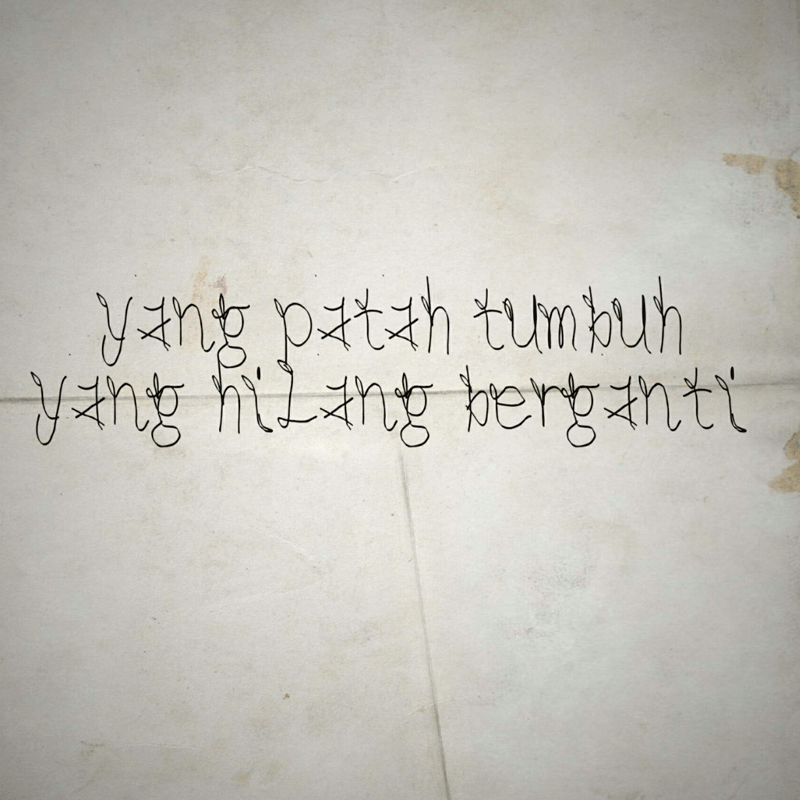 yang patah tumbuh
yang hiLang berganti